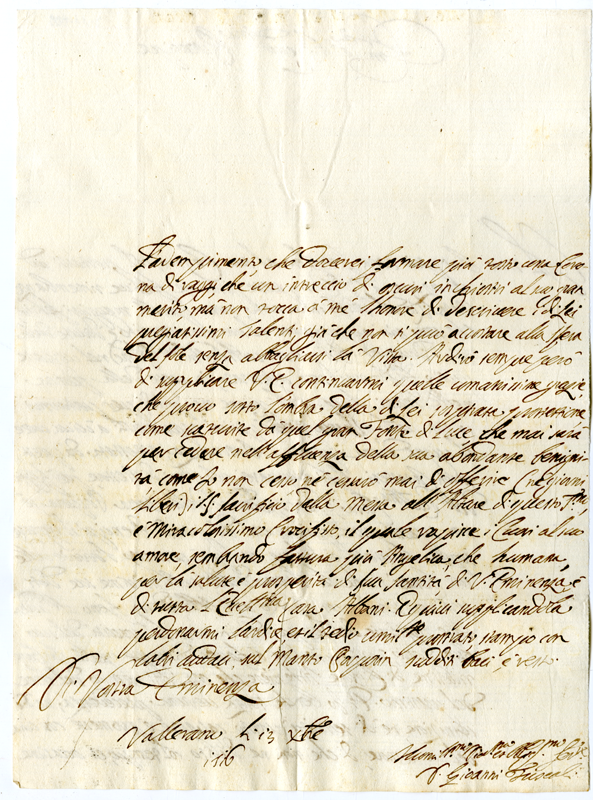 che dovevo formare più tosto una Coro-
na di raggi che un intreccio di oscuri inchiostri al suo gran
merito mà non tocca à mè l'honore di descrivere i di Lei
pregiatissimi talenti, già che non si può accostare alla sfera
del Sole senza abbagliarsi la Vista. Ardirò sempre però
di supplicare V. E. continuarmi quelle grazie,
che provo sotto l'ombra della di Lei protezione
come da quel gran Fonte di Luce che mai sarà
per cedere nell'affluenza della sua abondante benigni-
tà come Io non cesso né cessarò mai di offerire (ne giorni
liberi) il Sacrificio della Messa all'Altare di questo SS.mo
e Miracolosissimo Crocifisso, il quale rapisce i Cuori al suo
amore, sembrando fattura più Angelica, che humana,
per la salute e prosperità di Sua Santità di V. Eminenza e
di tutta Casa Albani. E quì supplicandola
perdonarmi l'ardire et il tedio
labri audaci, sul Manto baci, e resto
Di Vostra Eminenza
Vallerano li 13 Xbre
1716
Humil.mo
D. Giovanni